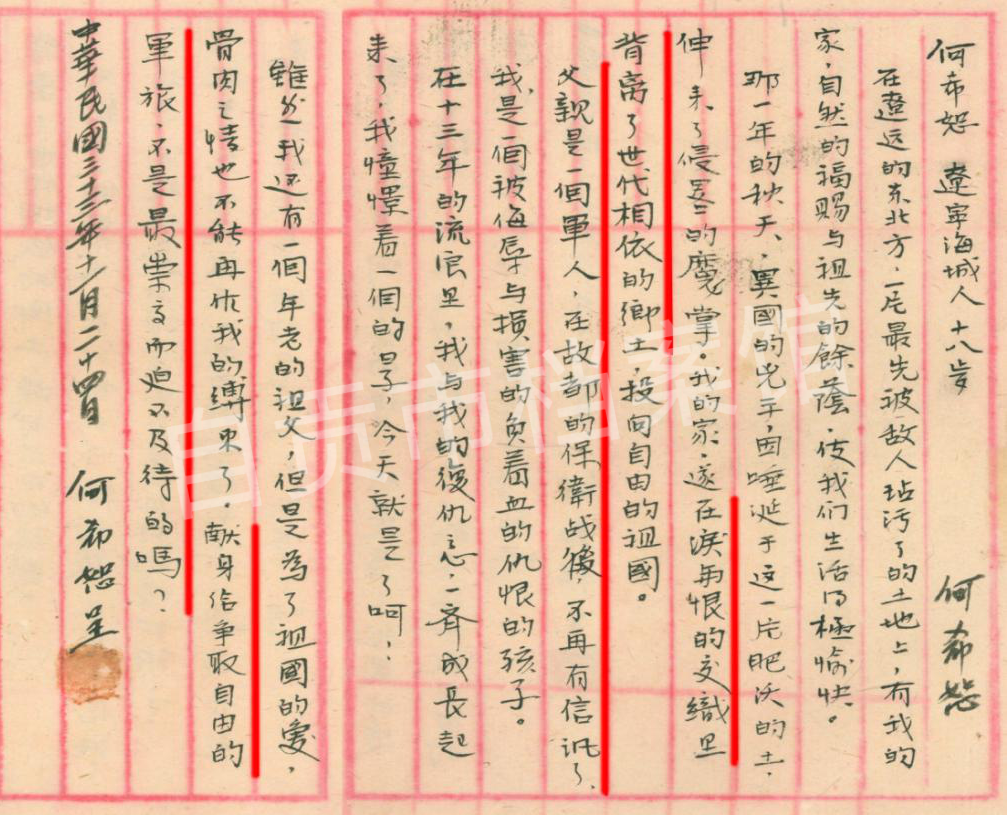 何希恕 遼寧海城人 十八歲 何希恕
在遼远的东北方，一片最先被敌人玷污了的土地上，有我的
家，自然的福賜与祖先的餘蔭，使我们生活得極愉快。
那一年的秋天，異國的兇手，因唾涎于这一片肥沃的土，
伸来了侵畧的魔掌。我的家，遂在淚与恨的交織里
背离了世代相依的鄉土，投向自由的祖國。
父親是一個軍人，在故都的保衛战後，不再有信讯了，
我，是一個被侮辱与損害的负着血的仇恨的孩子。
在十三年的流浪里，我与我的復仇念，一齊成長起
来了，我憧憬着一個的日子，今天就是了呵！
雖然我还有一個年老的祖父，但是為了祖國的愛，
骨肉之情也不能再作我的縛束了，献身给争取自由的
軍旅，不是最崇高而迫不及待的嗎？
中華民國三十三年十二月二十四日 何希恕呈
自贡市档案馆